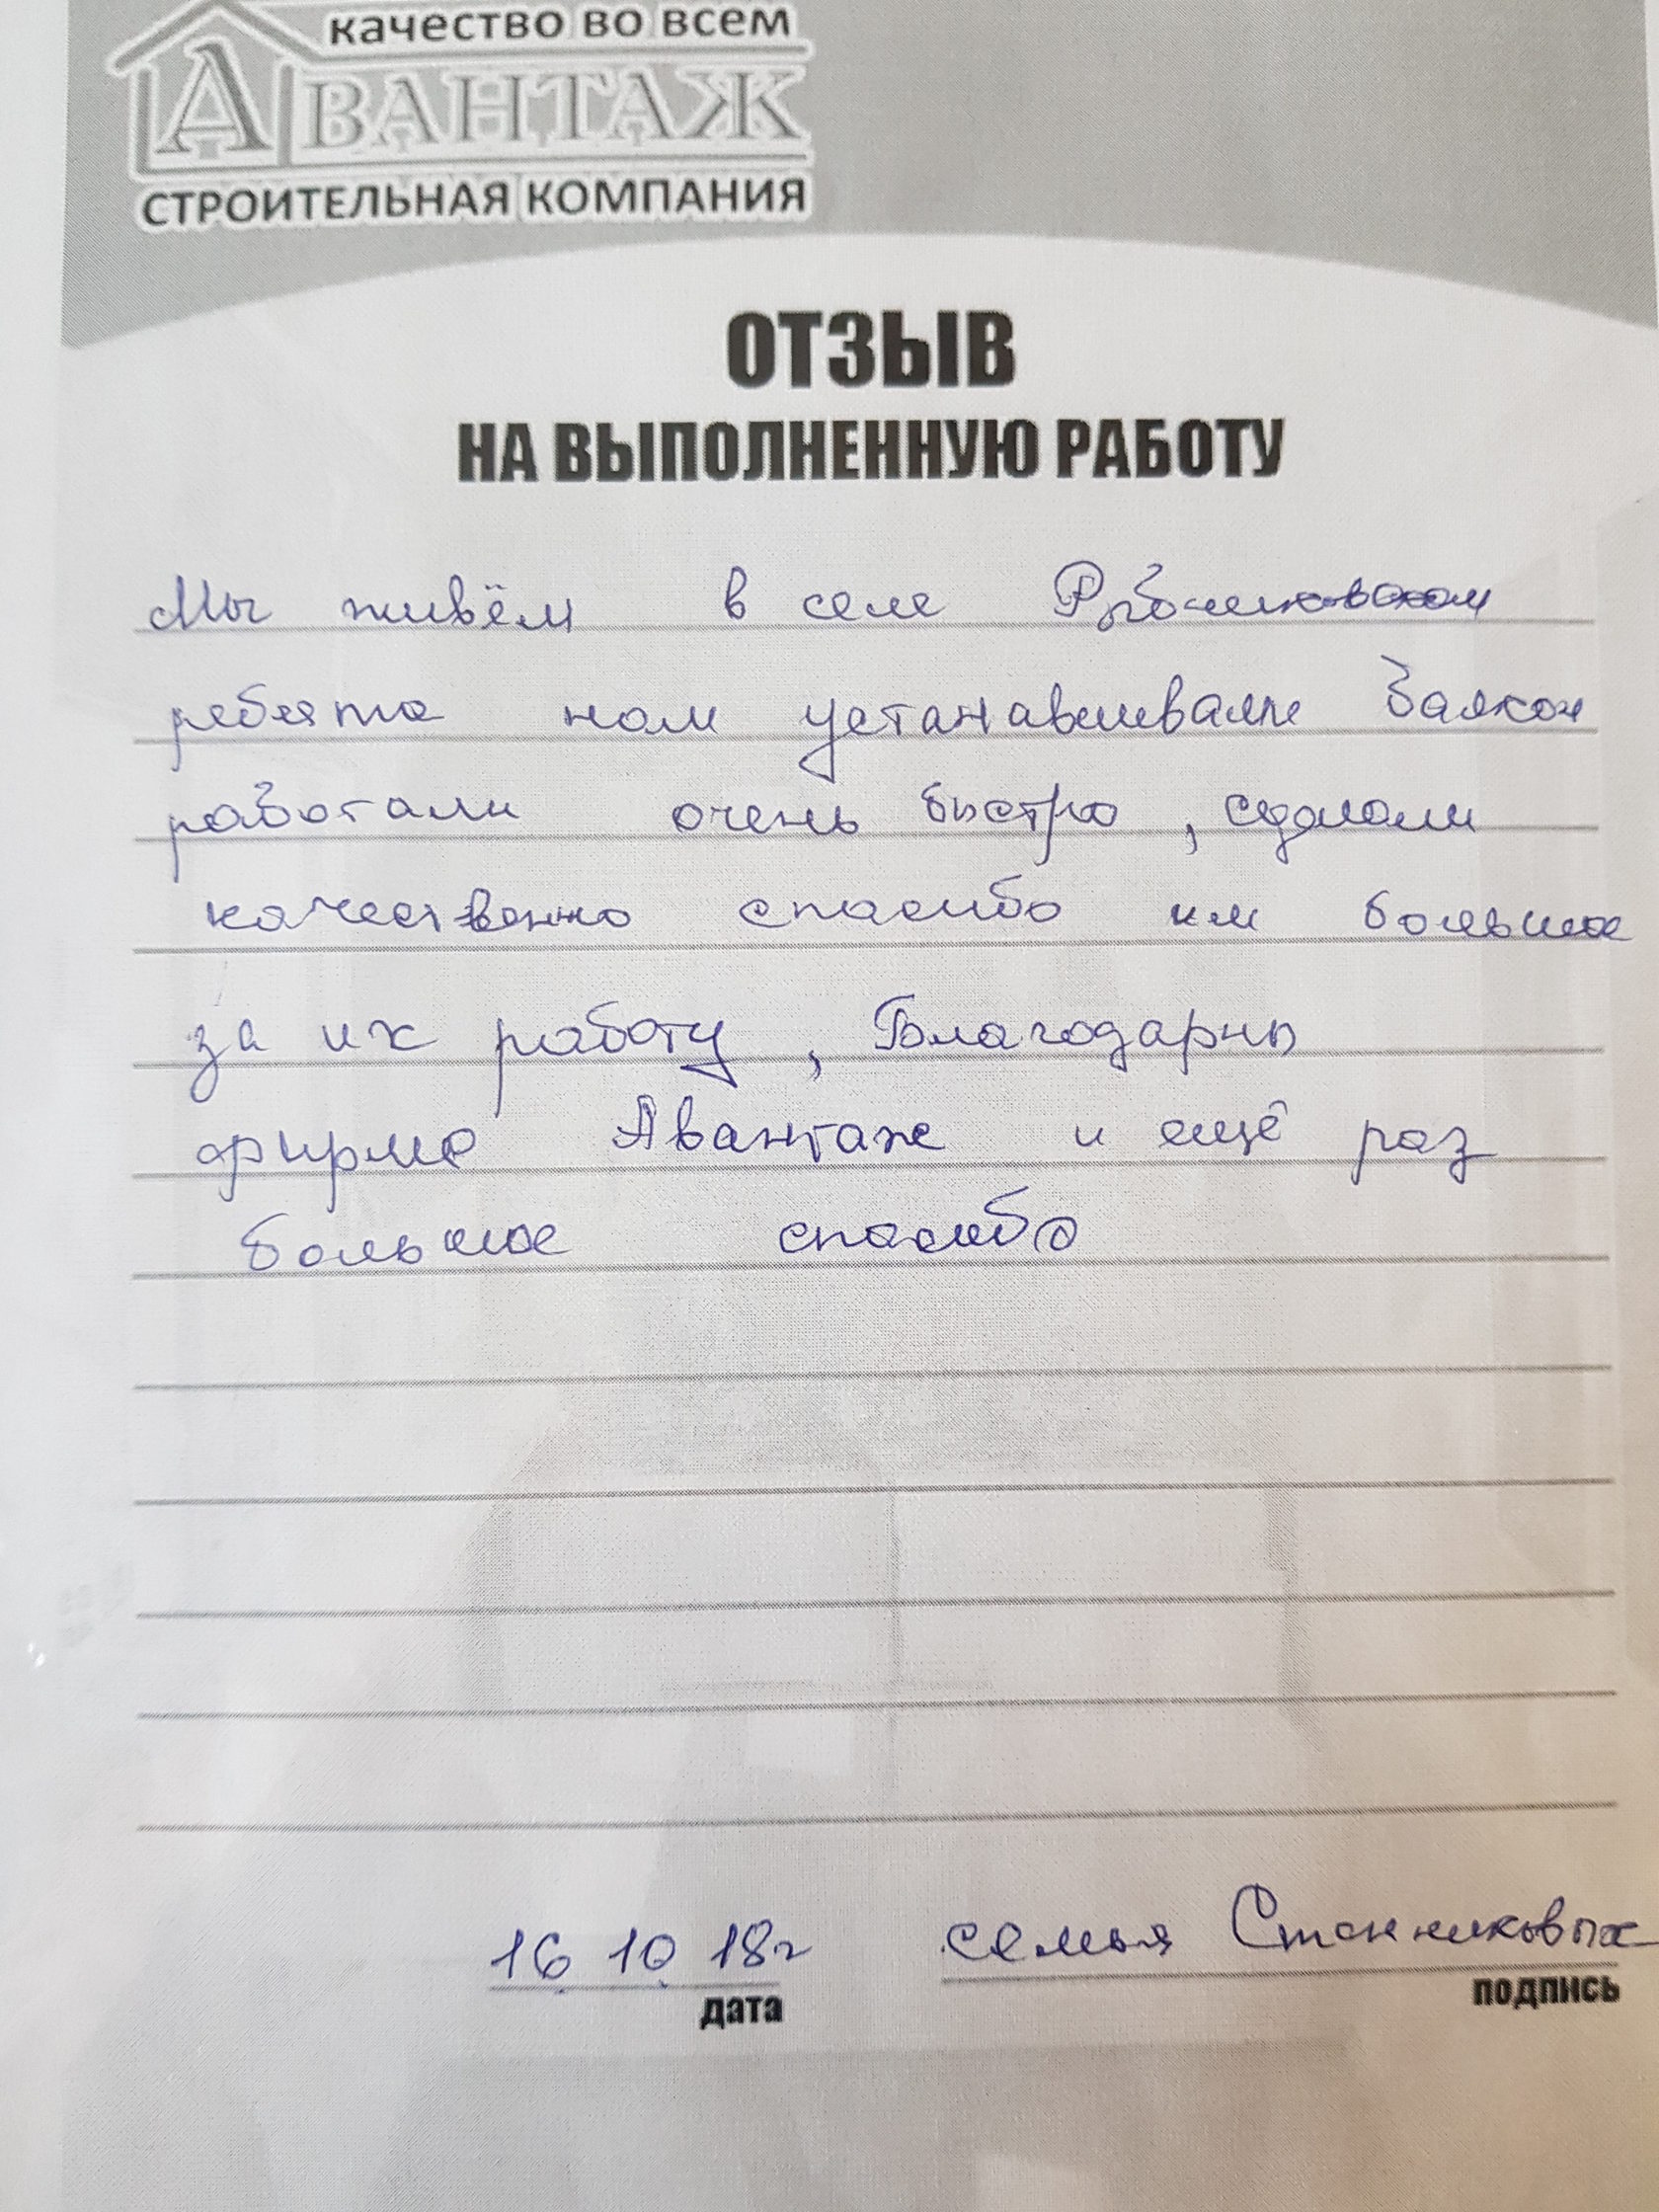 качество во всем
АВАНТАЖ
СТРОИТЕЛЬНАЯ КОМПАНИЯ
ОТЗЫВ
НА ВЫПОЛНЕННУЮ РАБОТУ
Мы живём в селе
ребята нам устанавливали балкон
работали очень быстро, сделали
качественно спасибо им большое
за их работу, Благодарны
фирме Авантаж и ещё раз
большое спасибо
16 10 18г семья Станниковых
дата подпись